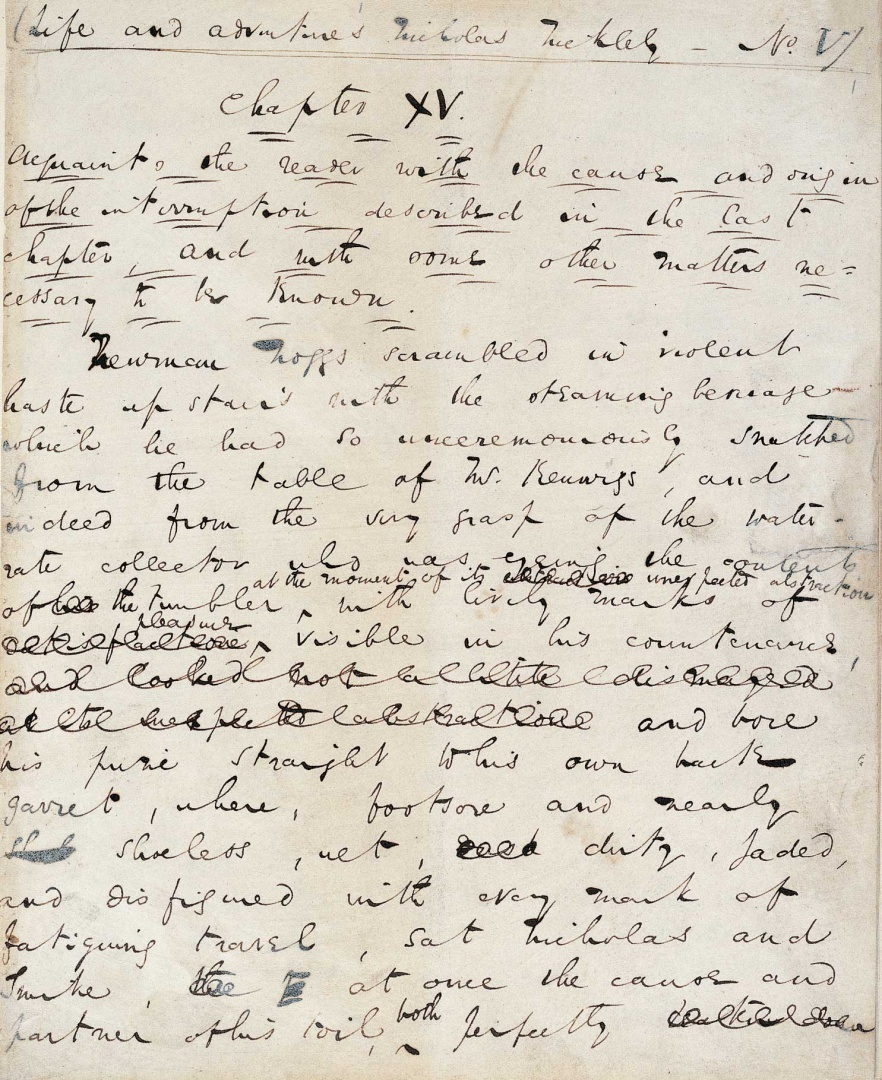 (Life and adventures Nicholas Nickleby – No. V)
Chapter XV.
Acquaints the reader with the cause and origin
of the interruption described in the last
chapter, and with some other matters ne=
cessary to be known.
Newman Noggs scrambled in violent
haste up stairs with the steaming beverage
which he had so unceremoniously snatched
from the table of Mr. Kenwigs, and
indeed from the very grasp of the water-
rate collector who was eyeing the contents
at the moment of its unexpected abstraction
of the tumbler, with lively marks of
pleasure
satisfaction visible in his countenance,
and looked not a little dismayed
at its unexpected abstraction and bore
his prize straight to his own back
garret, where, footsore and nearly
shoeless, wet, dirty, jaded,
and disfigured with every mark of
fatiguing travel, sat Nicholas and
Smike, at once the cause and
partner of his toil, both perfectly